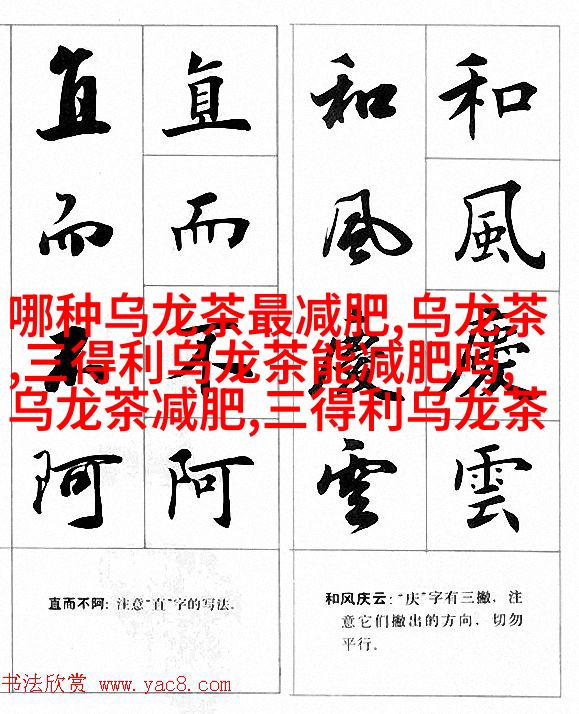 直 直 和 和
而 而 風 風
哪种乌龙茶最减肥,乌龙茶
,三得利乌龙茶能减肥吗,
乌龙茶减肥,三得利乌龙茶
不 不 慶 慶
阿 阿 雲 雲
直而不阿: 注意“直”字的写法.
和风庆云: “庆”字有三撇, 注
意它们撇出的方向, 切勿
平行。
书法欣赏 www.yac8.com